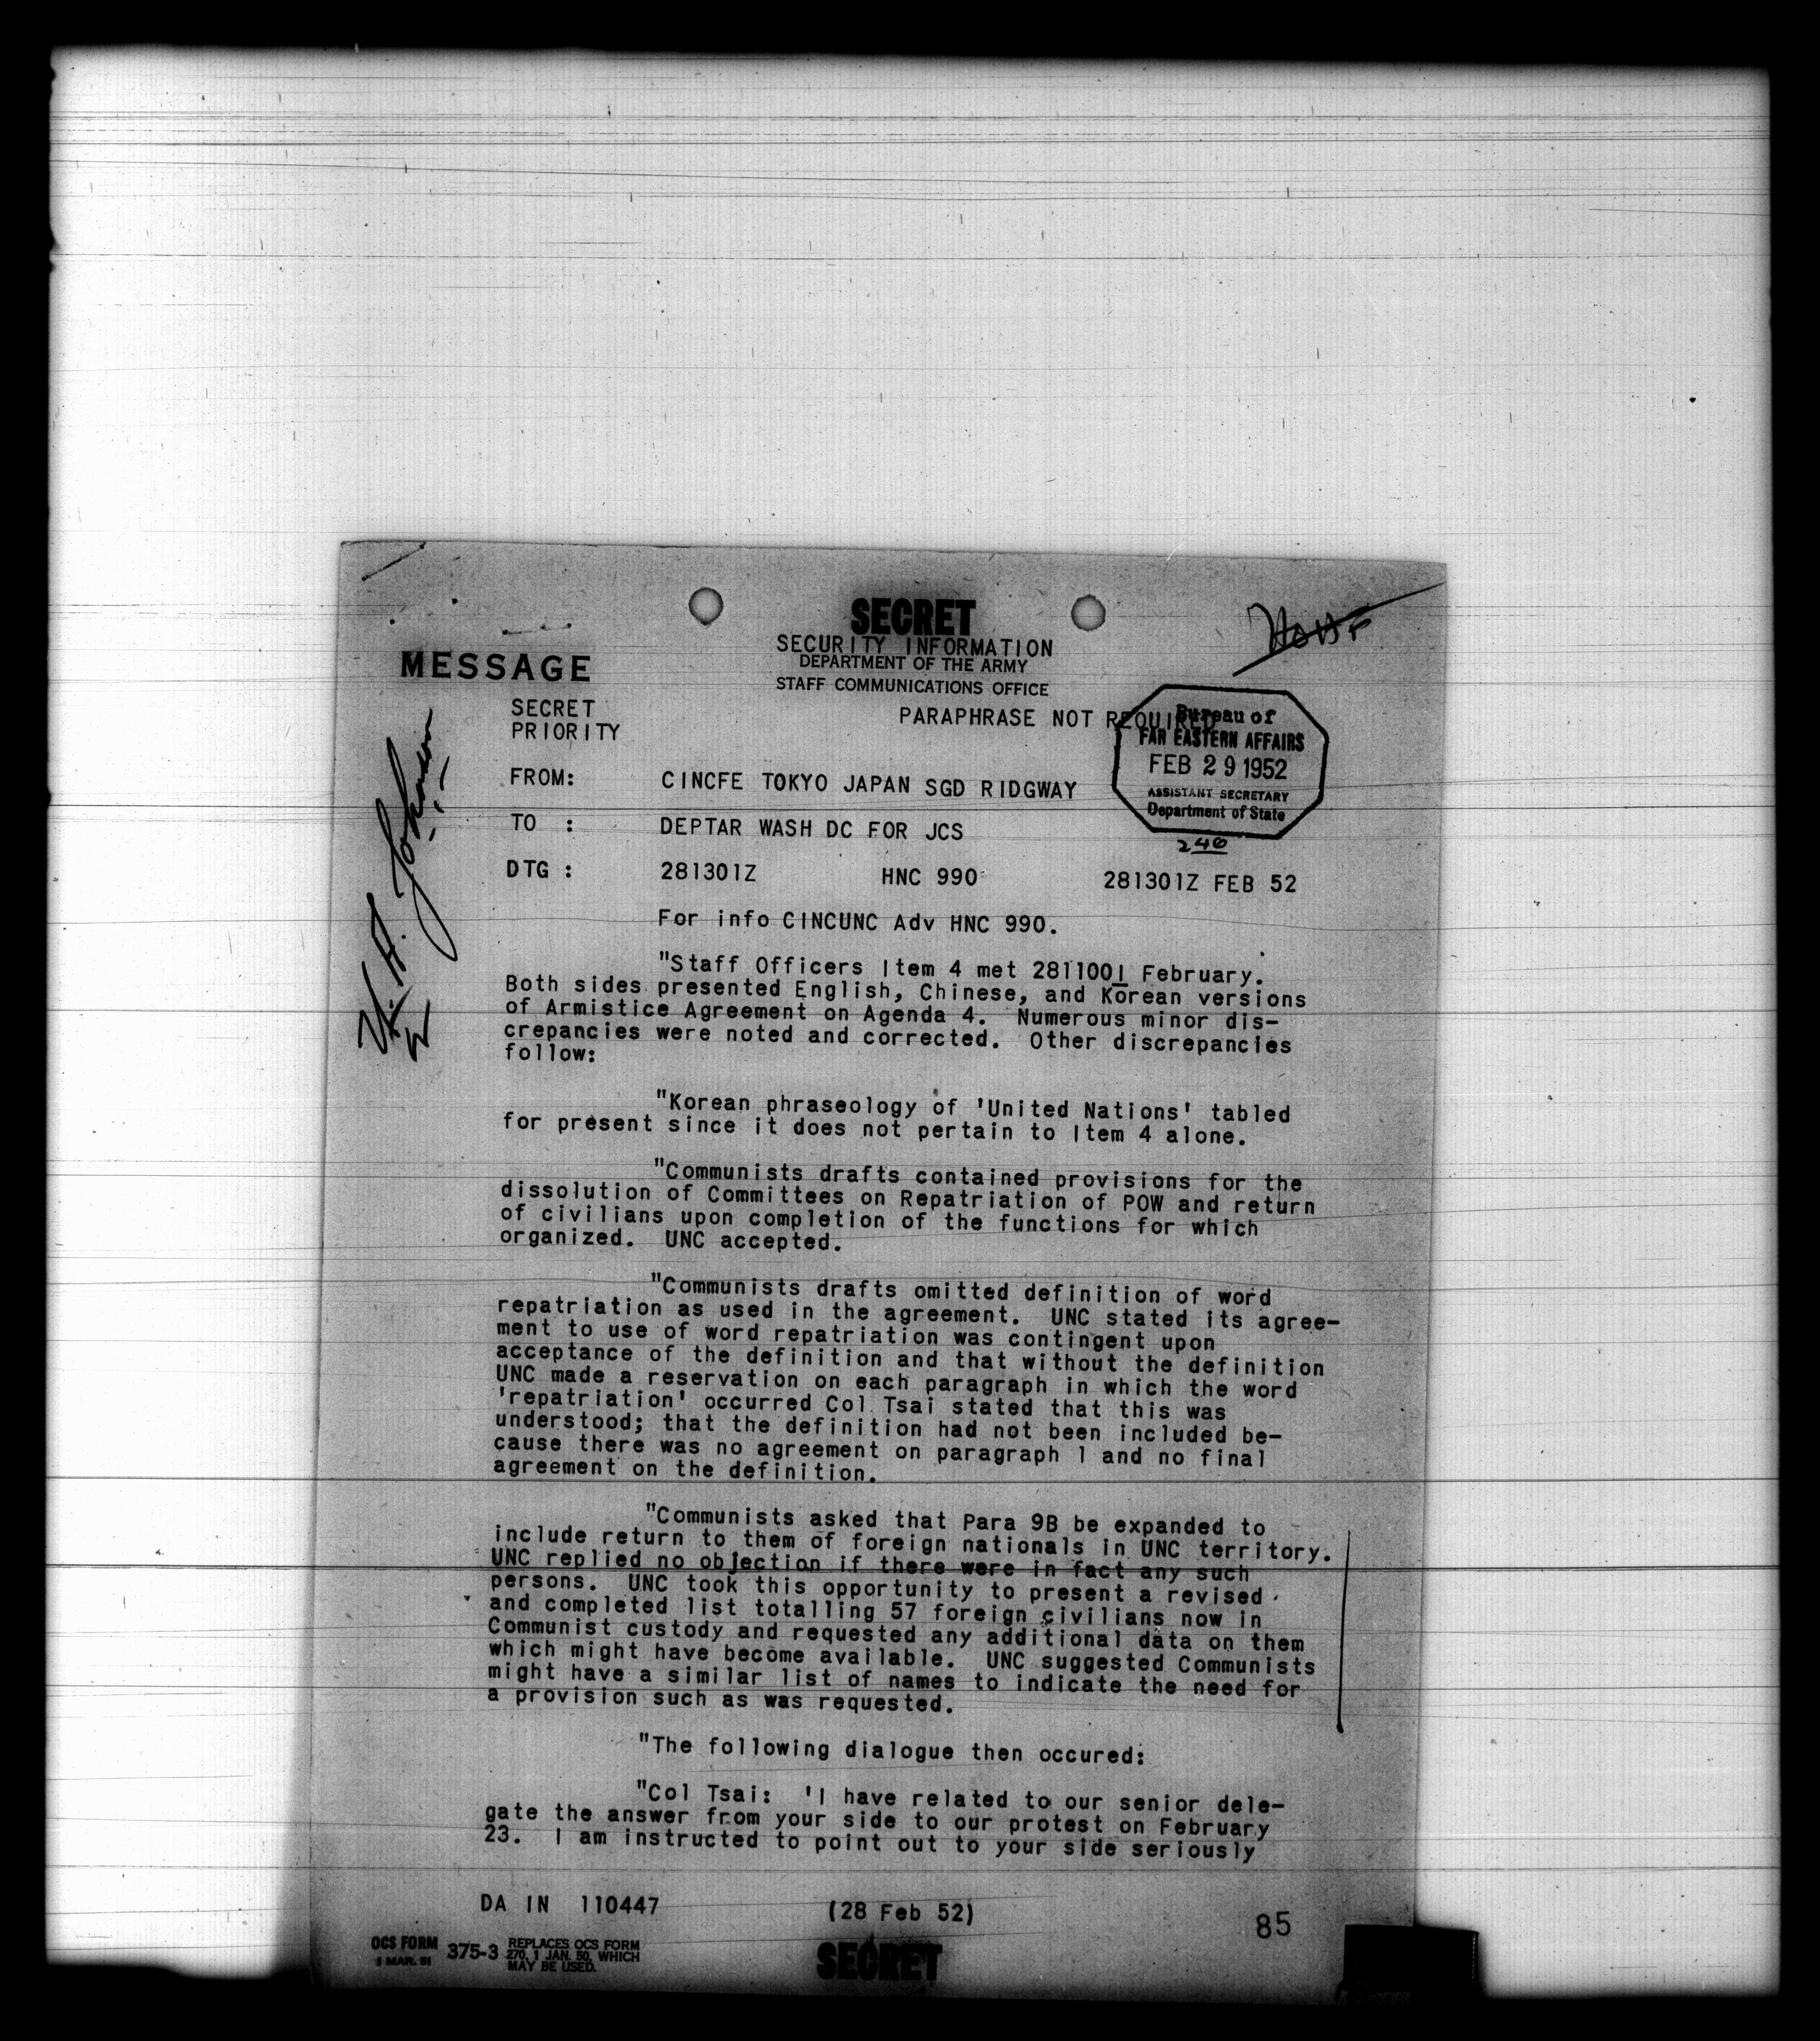 SECRET
SECURITY INFORMATION
MESSAGE
DEPARTMENT OF THE ARMY
STAFF COMMUNICATIONS OFFICE
SECRET
PRIORITY
PARAPHRASE NOT REQUIRED
Bureau of
FAR EASTERN AFFAIRS
FEB 29 1952
ASSISTANT SECRETARY
Department of State
240
FROM: CINCFE TOKYO JAPAN SGD RIDGWAY
TO : DEPTAR WASH DC FOR JCS
DTG : 281301Z HNC 990 281301Z FEB 52
For info CINCUNC Adv HNC 990.
"Staff Officers Item 4 met 281100I February.
Both sides presented English, Chinese, and Korean versions
of Armistice Agreement on Agenda 4. Numerous minor dis-
crepancies were noted and corrected. Other discrepancies
follow:
"Korean phraseology of 'United Nations' tabled
for present since it does not pertain to Item 4 alone.
"Communists drafts contained provisions for the
dissolution of Committees on Repatriation of POW and return
of civilians upon completion of the functions for which
organized. UNC accepted.
"Communists drafts omitted definition of word
repatriation as used in the agreement. UNC stated its agree-
ment to use of word repatriation was contingent upon
acceptance of the definition and that without the definition
UNC made a reservation on each paragraph in which the word
'repatriation' occurred Col Tsai stated that this was
understood; that the definition had not been included be-
cause there was no agreement on paragraph 1 and no final
agreement on the definition.
"Communists asked that Para 9B be expanded to
include return to them of foreign nationals in UNC territory.
UNC replied no objection if there were in fact any such
persons. UNC took this opportunity to present a revised
and completed list totalling 57 foreign civilians now in
Communist custody and requested any additional data on them
which might have become available. UNC suggested Communists
might have a similar list of names to indicate the need for
a provision such as was requested.
"The following dialogue then occured:
"Col Tsai: 'I have related to our senior dele-
gate the answer from your side to our protest on February
23. I am instructed to point out to your side seriously
DA IN 110447 (28 Feb 52) 85
OCS FORM 375-3 REPLACES OCS FORM
1 MAR. 51 270, 1 JAN. 50, WHICH
MAY BE USED.
SECRET
U. A. Johnson